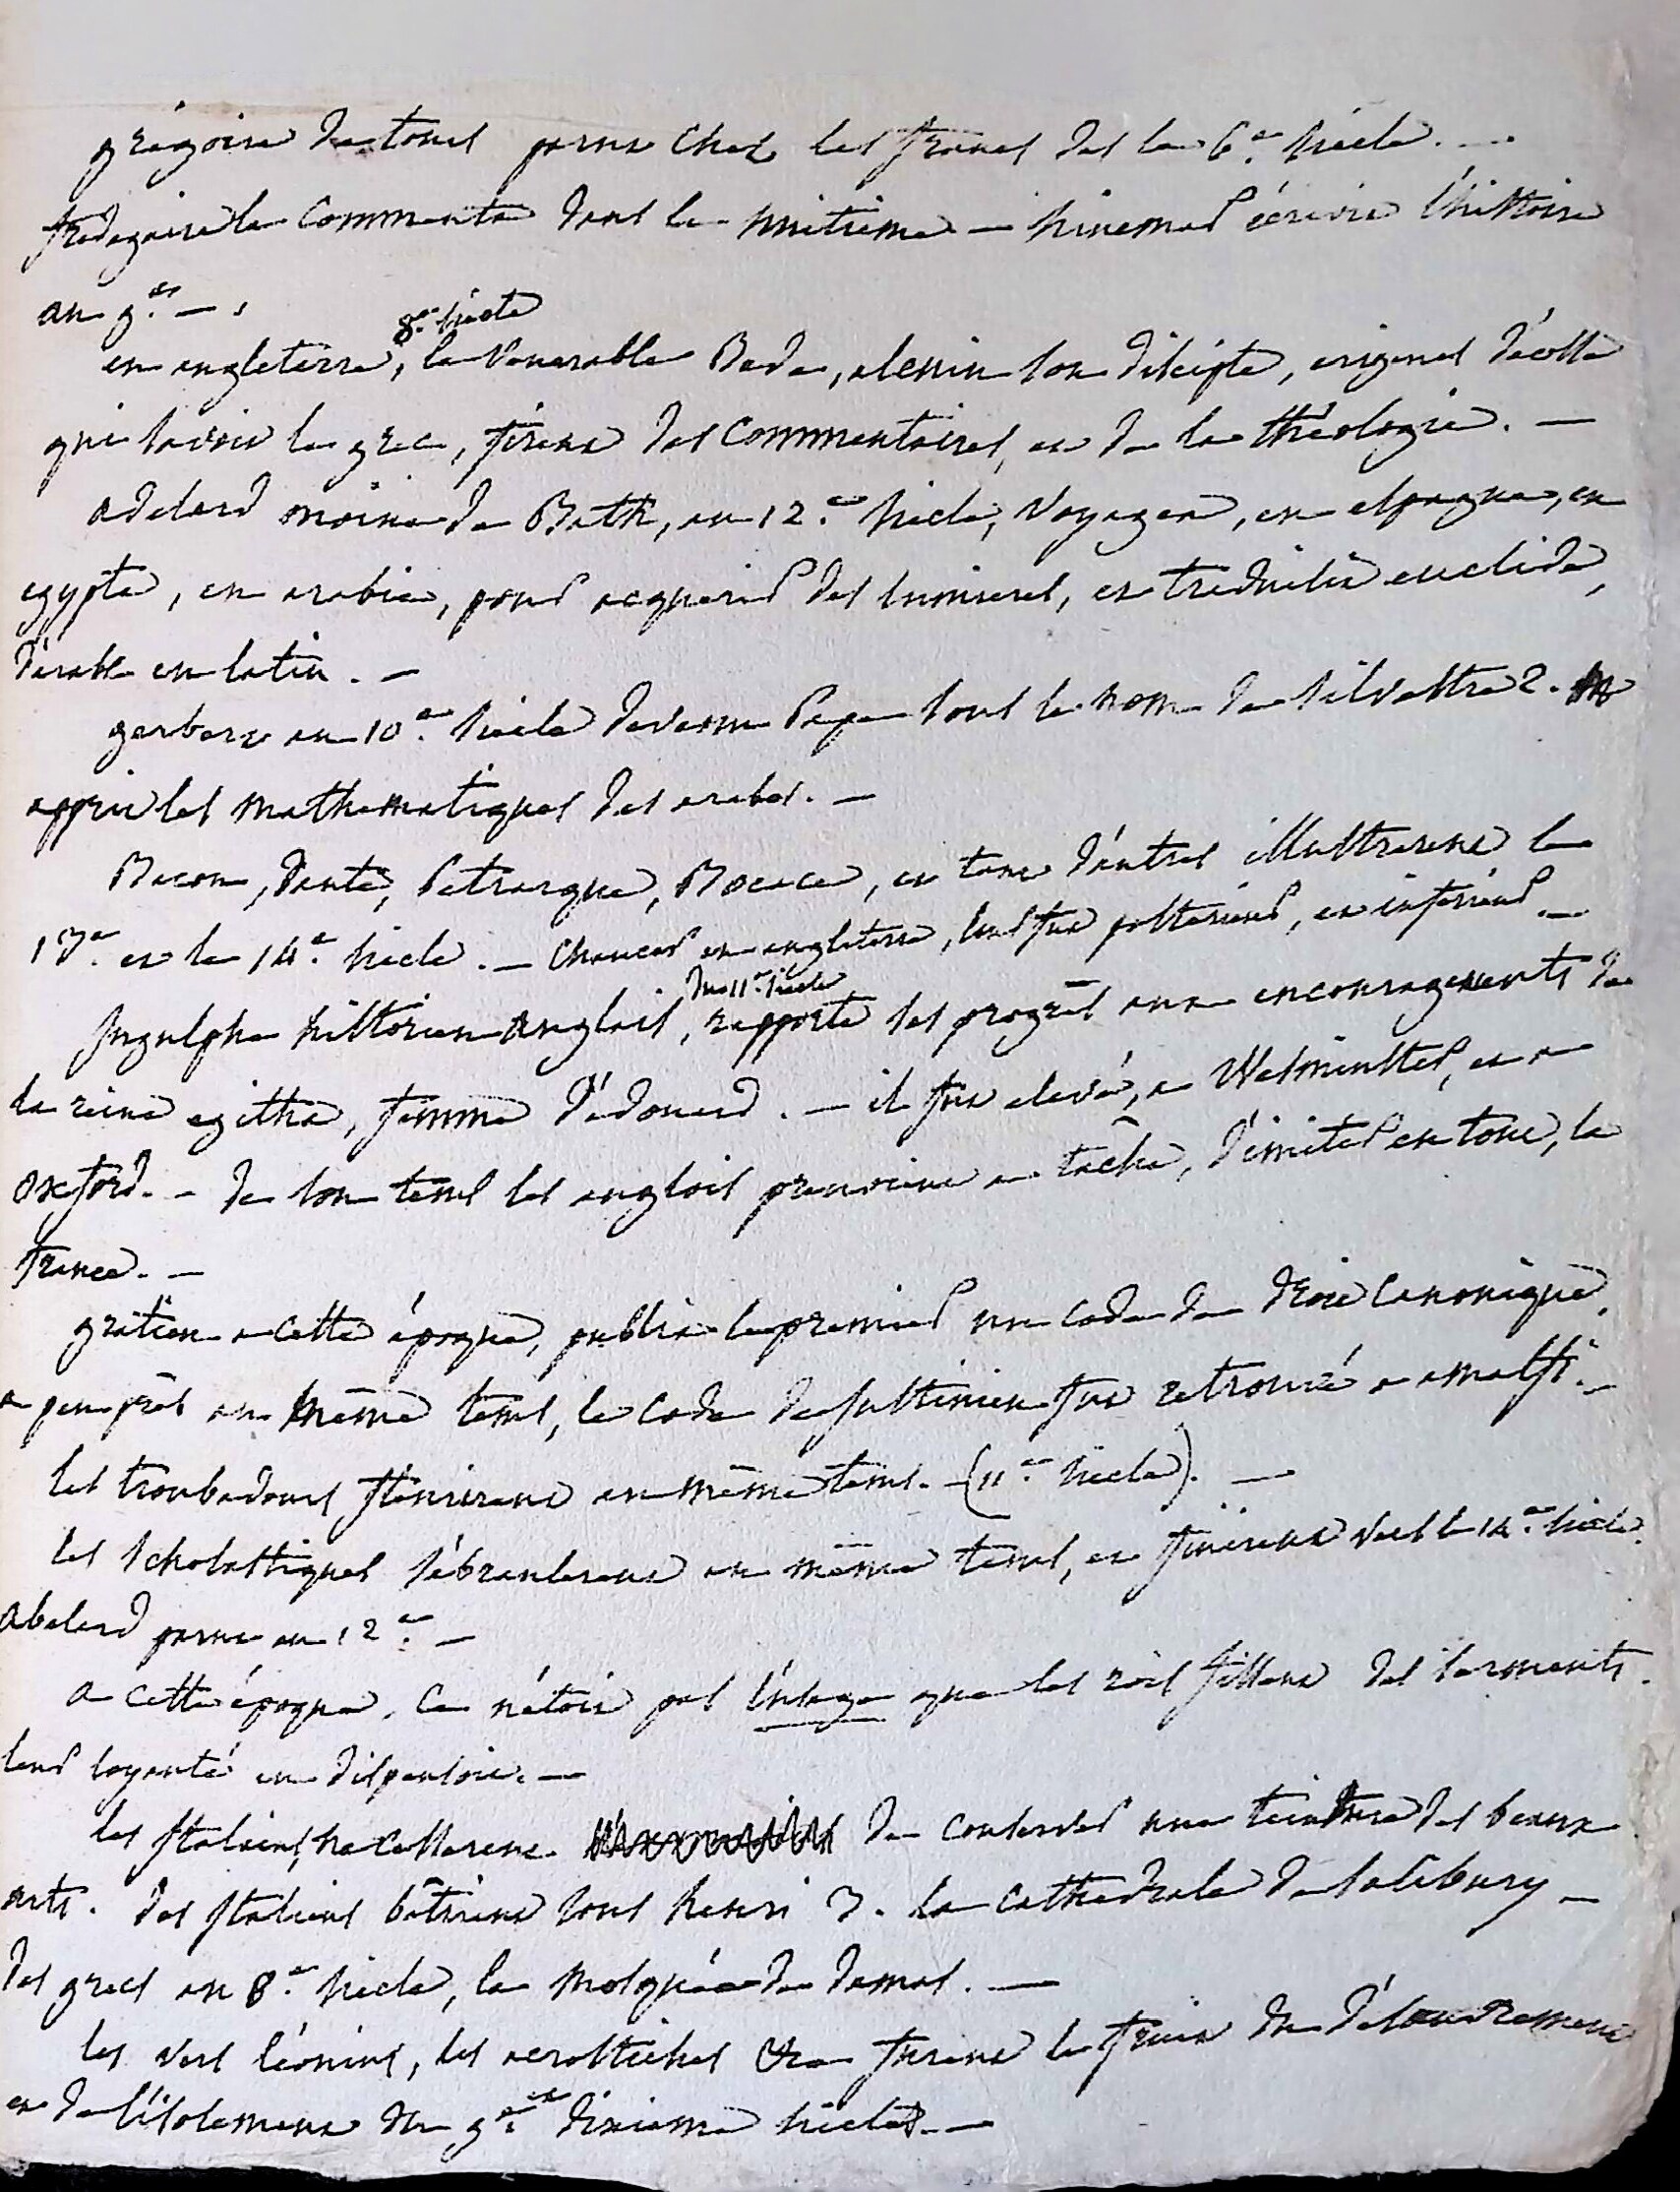 grégoire de tours parut chez les francs dès le 6.e siècle. —
fredegaire le commenta dans le huitième — hincmar écrivit l'histoire
au 9.e — .
8.e siècle
en angleterre, le venerable Bede, alcuin son disciple, erigenes d'écosse
qui savoit le grec, firent des commentaires, et de la théologie. —
adelard moine de Bath, au 12.e siècle, voyagea, en espagne, en
egypte, en arabie, pour acquerir des lumieres, et traduisit euclide,
d'arabe en latin. —
gerbert au 10.e siècle devenu Pape sous le nom de silvestre 2.
apprit les mathematiques des arabes. —
Bacon, Dante, Petrarque, Bocace, et tant d'autres illustrerent le
13.e et le 14.e siècle. — Chaucer en angleterre, leur fut posterieur, et inferieur. —
du 11.e siècle
Ingulphe historien anglais, rapporte les progrès aux encouragements de
la reine egitha, femme d'édouard. — il fut elevé, a Westminster, et a
oxford. — de son tems les anglois prenoient a tâche, d'imiter en tout, la
france. —
gratien a cette époque, publia le premier un code de droit canonique.
a peu près au même tems, le code de Justinien fut retrouvé a amalfi. —
les troubadours fleurirent en même tems. — (11.e siècle). —
les scholastiques s'ébranlerent en même tems, et finirent vers le 14.e siècle.
abelard parut au 12.e —
a cette époque, ce n'étoit pas l'usage que les rois fissent des serments.
leur loyauté en dispensoit. —
les Italiens, ne cesserent de conserver une teinture des beaux
arts. des Italiens bâtirent sous henri 3. la cathedrale de salisbury —
des grecs au 8.e siècle, la mosquée de damas. —
les vers léonins, les acrostiches &ca furent le fruit du désoeuvrement
et de l'isolement du 9.e dixieme siècles. —